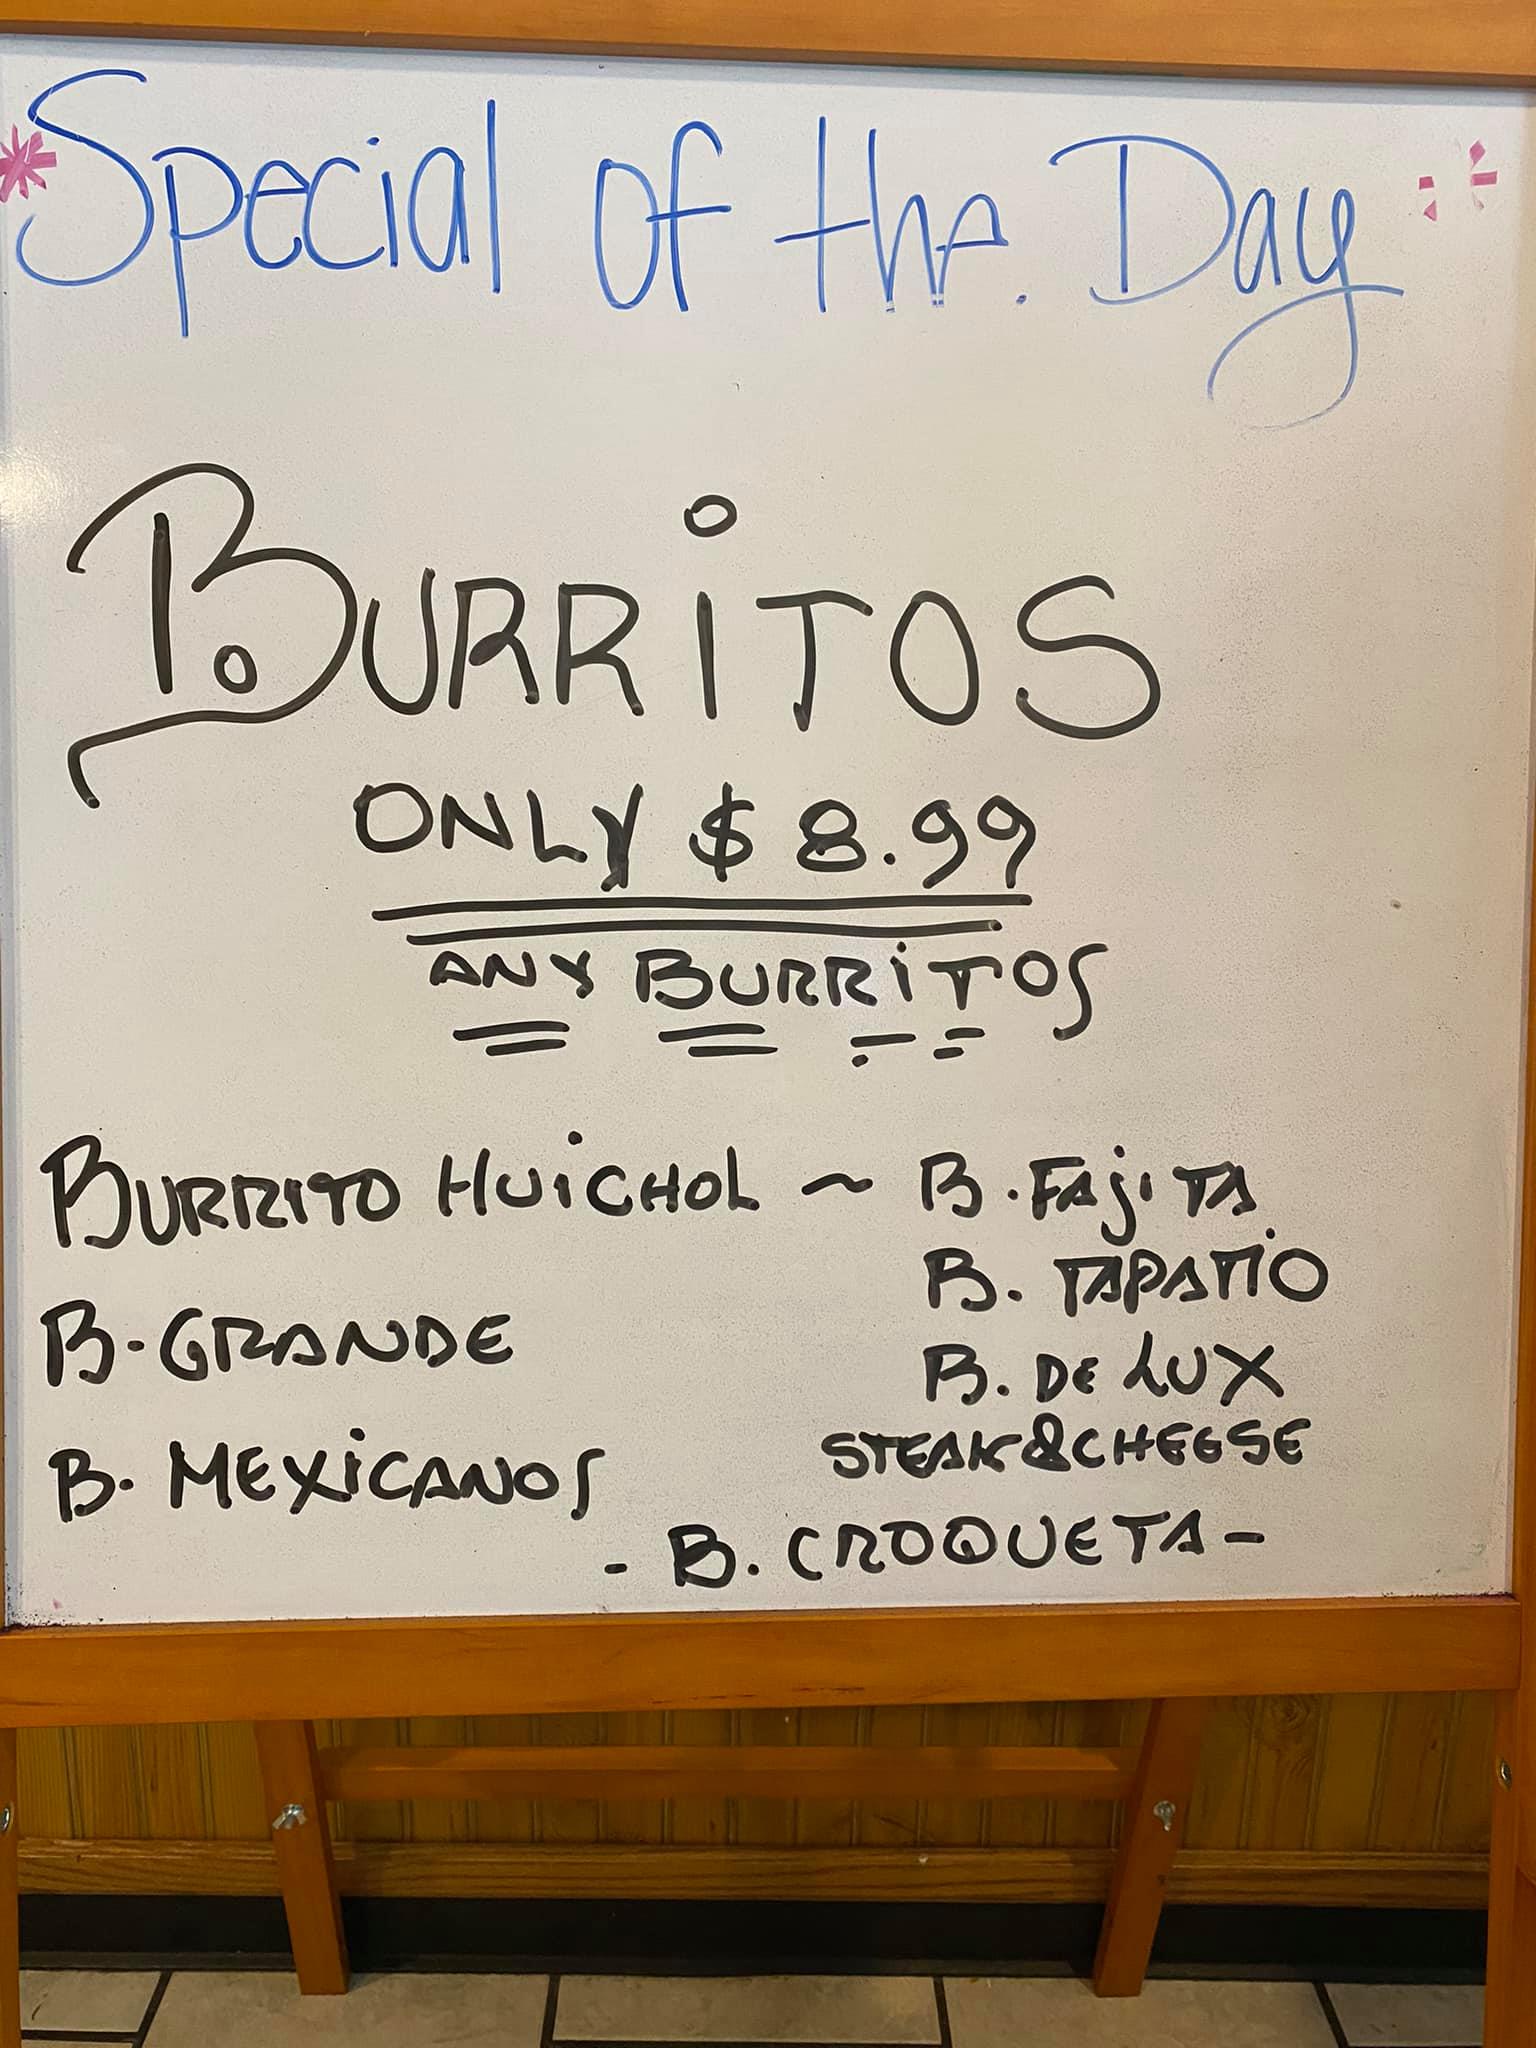 Special of the. Day
BURRiTOS
ONLY $8.99
ANY BURRiTOS
BURRITO HUiCHOL ~ B. FAJiTA.
B. GRANDE
B. MEXiCANOS
B. TAPATIO
B. DE LUX
STEAK&CHEESE
- B. CROQUETA -